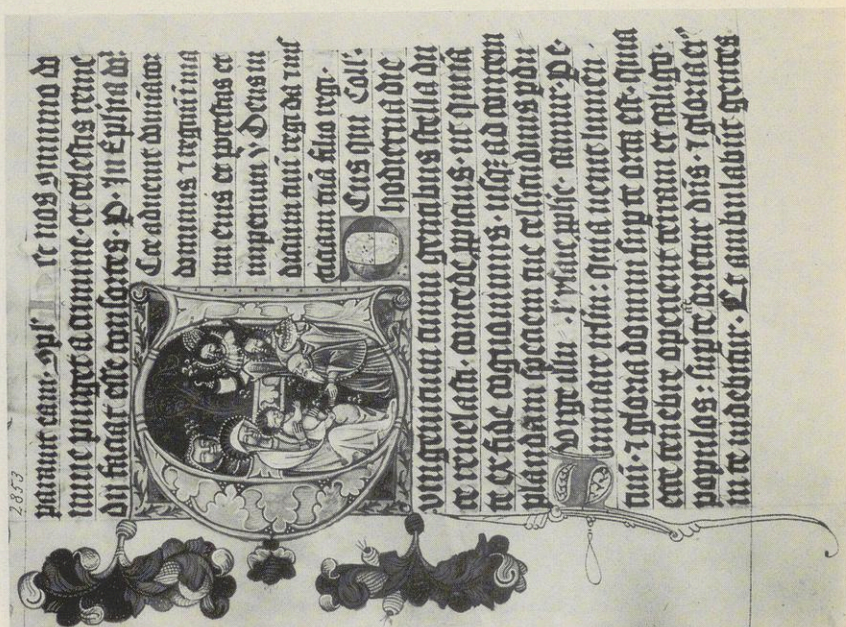 2853
parauit eam · xps̄ ec nos gmunio do
mine purget a crimine · et celestis reme
dij faciat esse consortes · P · In Ephia dn̄i
Ecce aduenit dn̄ator
dominus ⁊ regnū in ma
nu eius et potestas et
imperium ꝟ Deus iu
dicium tuū regi da ⁊ ius
ticiam tuā filio regi ·
Deus qui Coll'
hodierna die
vnigenitum tuum gentibus stella du
ce reuelasti · concede ꝓpicius · ut qui iā
te ex fide cognouimus · usq; ad contem
plandam speciem tue celsitudinis ꝑdu
Surge illu · ysaie ꝓphe · camur · Pe ·
minare irlm̄ : quia uenit lumen ·
tuū · ⁊ gloria domini super te orta est · quia
ecce tenebre operient terram et caligo ·
populos : super te aut orietur dn̄s · ⁊ gloria ei'
in te uidebitur · Et ambulabūt gentes